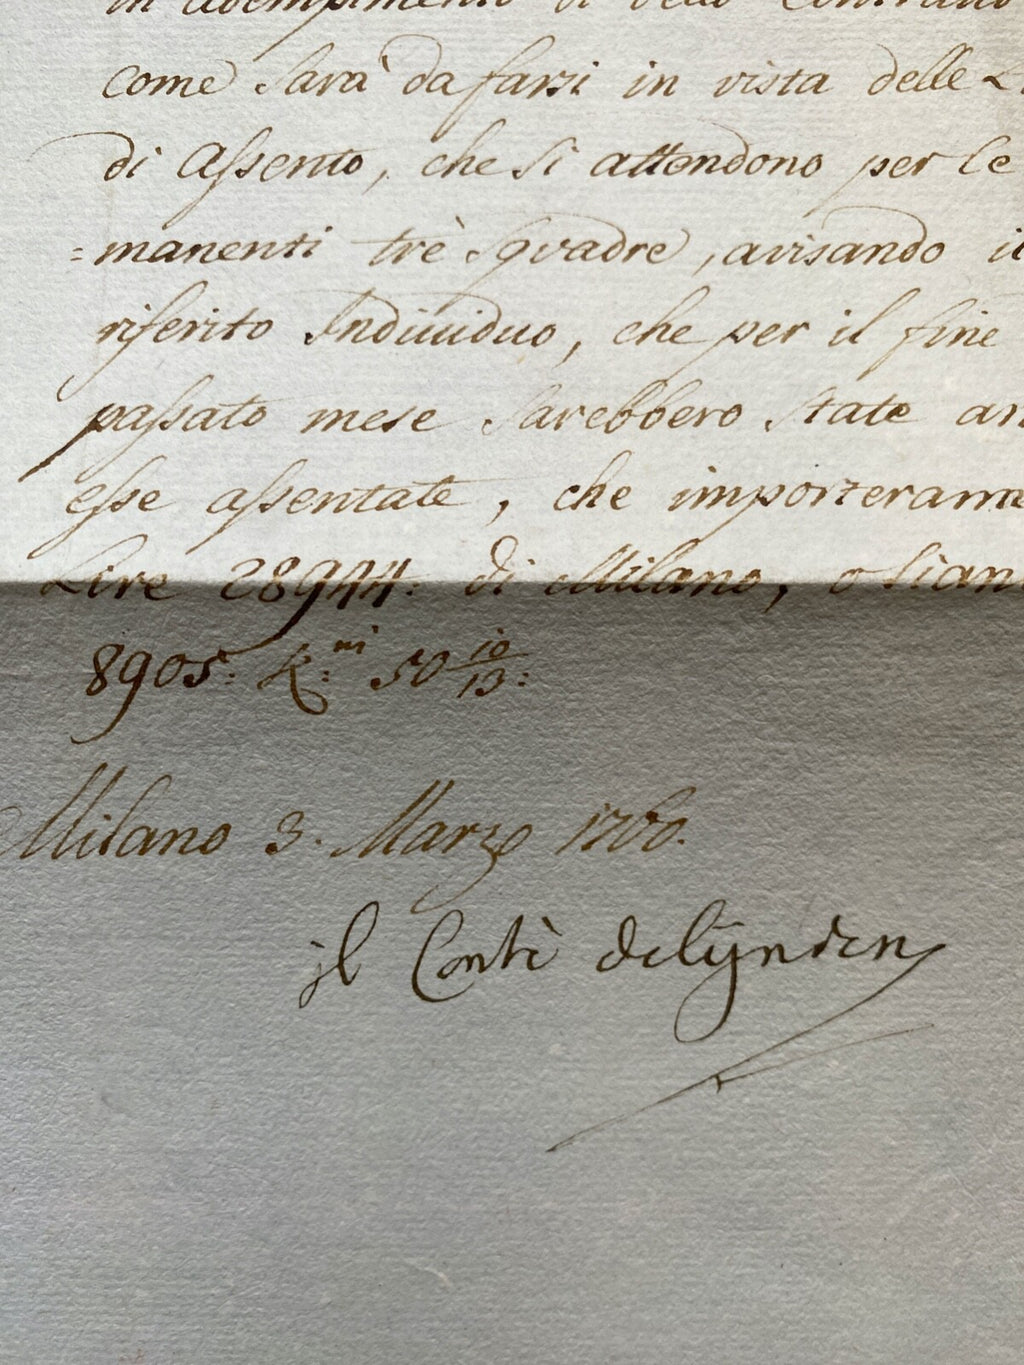 in adempimento di detto Contratto
come Sarà da farsi in vista delle
di Assento, che si attendono per le
=manenti trè Squadre, avisando il
riferito Individuo, che per il fine
passato mese Sarebbero State
esse assentate, che importeranno
Lire 28944. di Milano, o sian
8905: K:ni 50 10/13:
Milano 3. Marzo 1760.
il Contè delÿnden